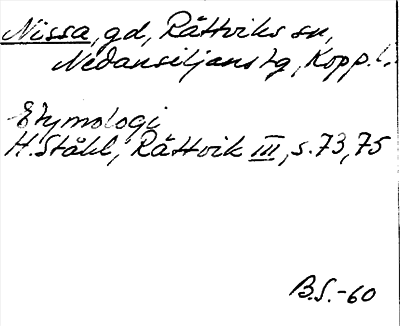 Nissa, gd, Rättviks sn,
Nedansiljans tg, Kopp. l.
Etymologi
H. Ståhl, Rättvik III, s. 73, 75
B.S. -60